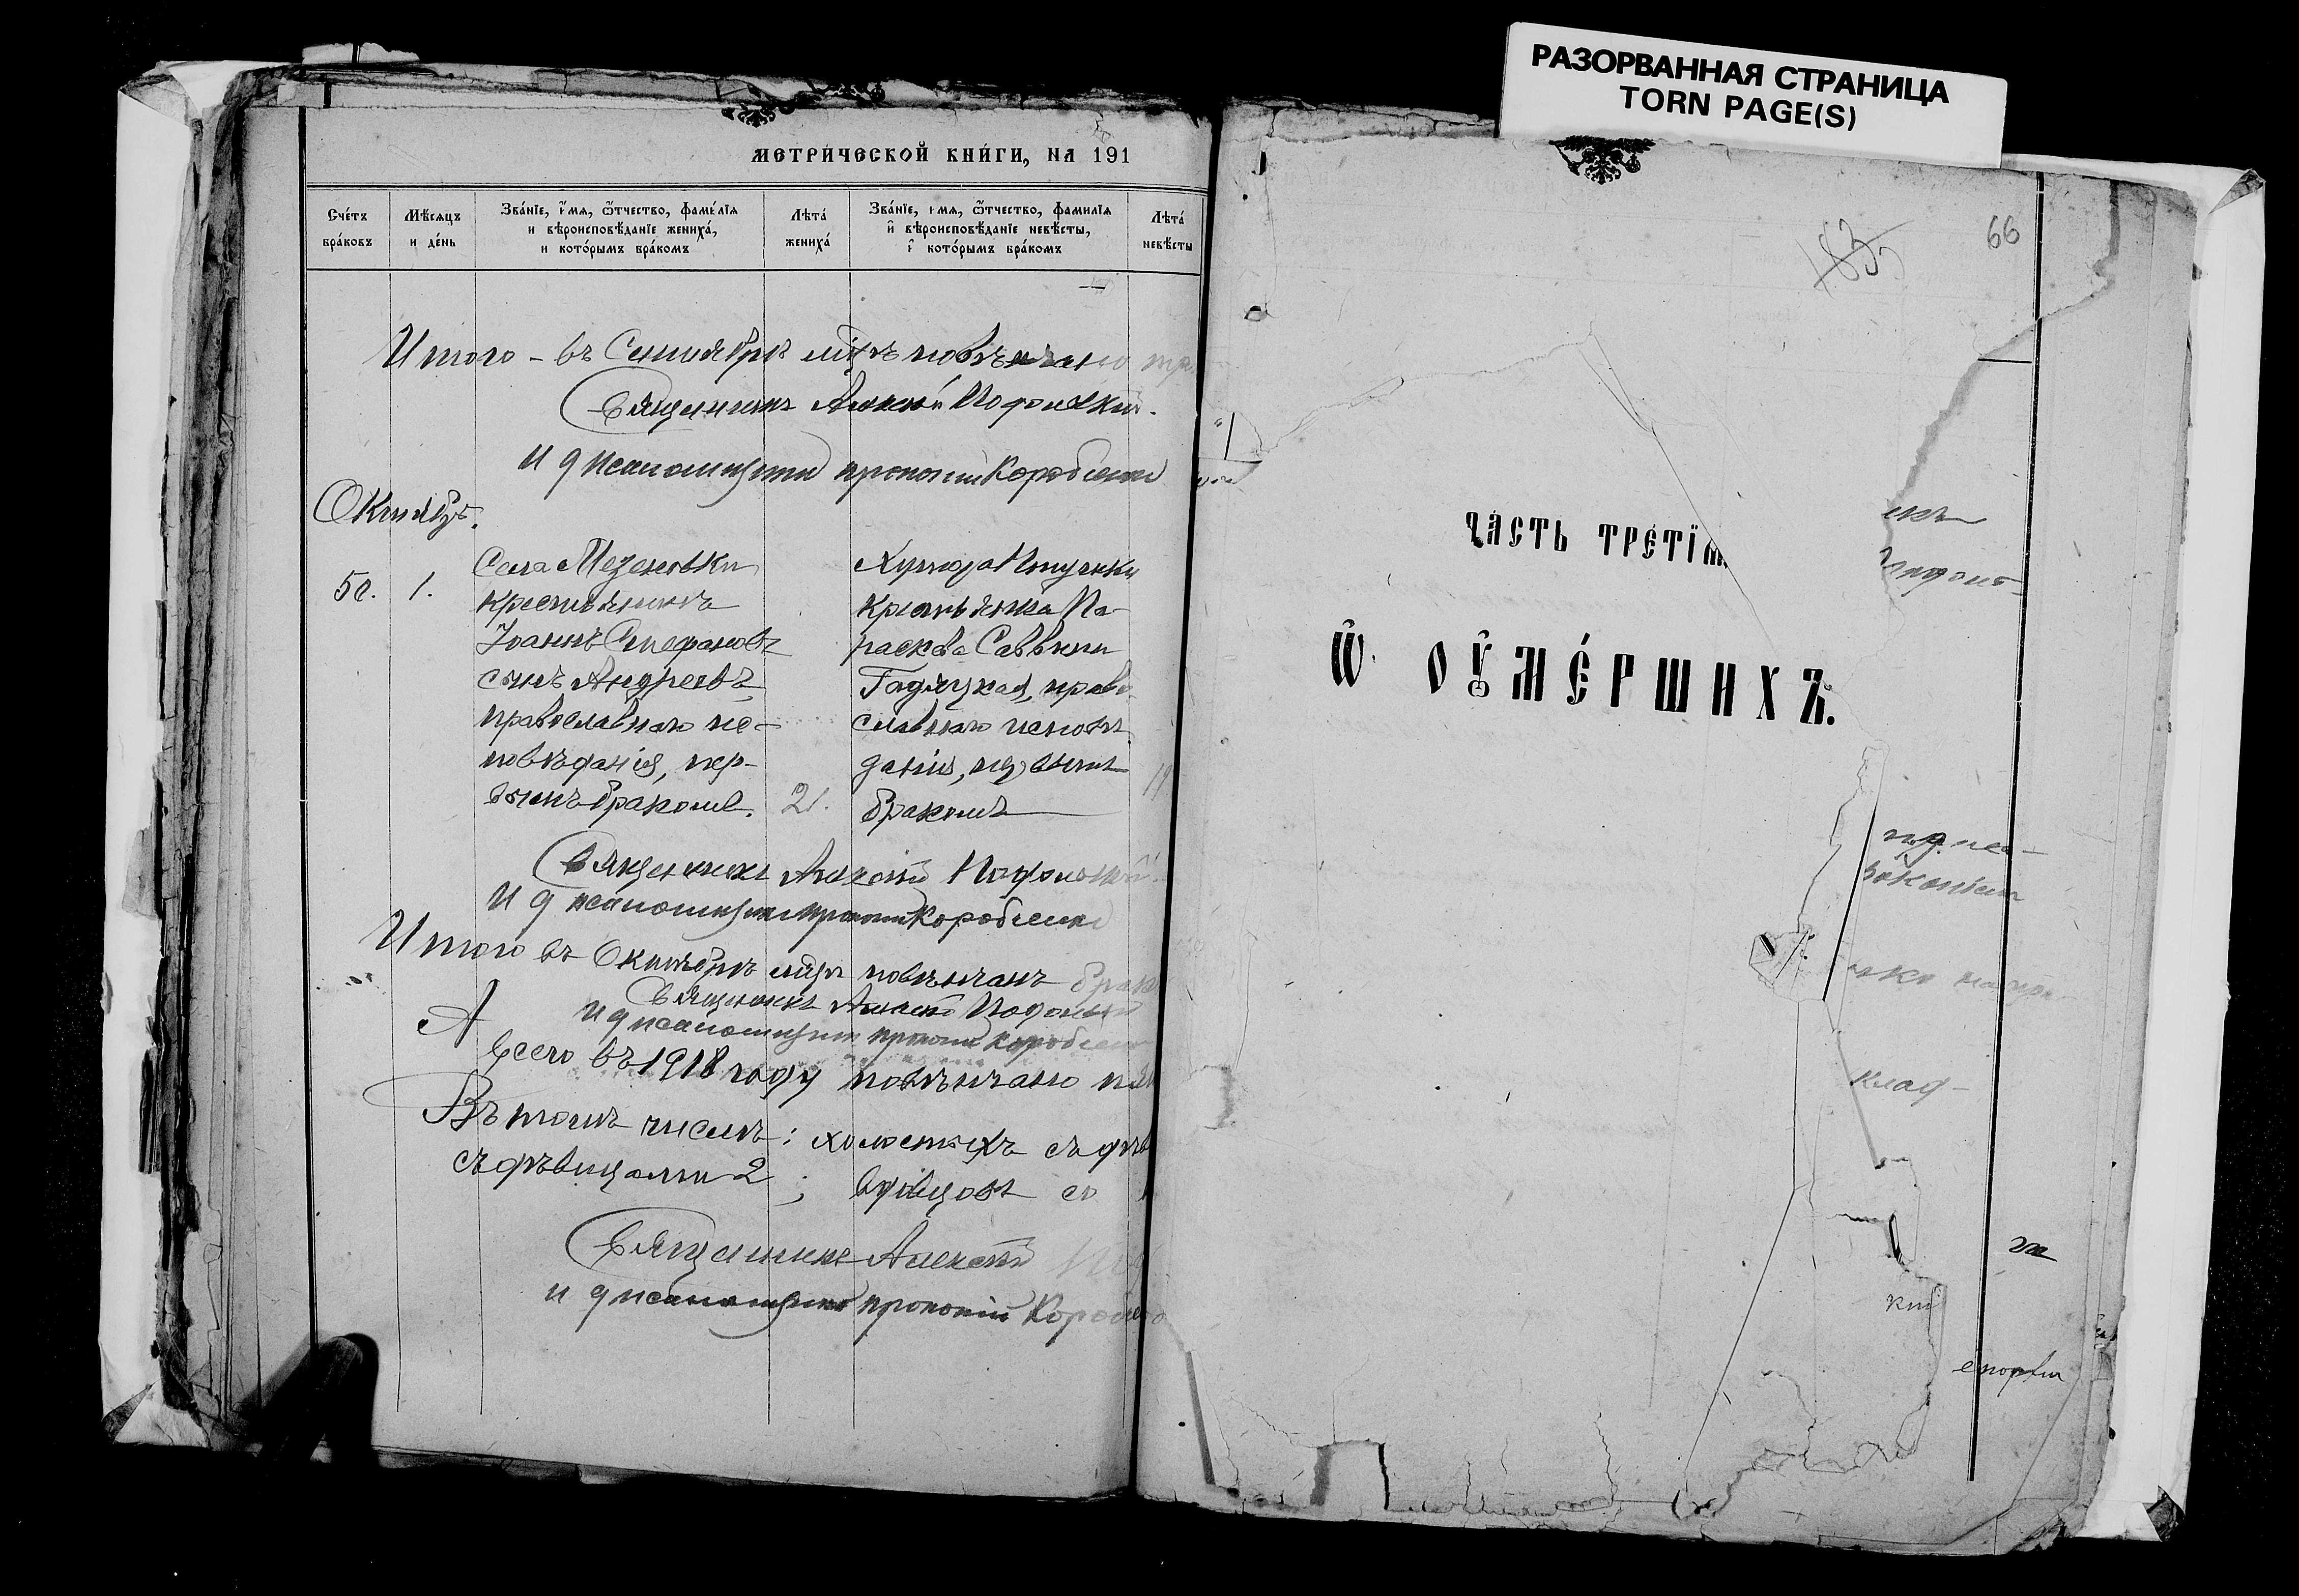 РАЗОРВАННАЯ СТРАНИЦА
TORN PAGE(S)
МЕТРИ́ЧЕСКОЙ КНИ́ГИ, НА 191
Сче́тъ бра́ковъ
Мѣ́сяцъ и де́нь
Зва́нїе, и҆́мѧ, ѻ҆́тчество, фами́лїѧ
и вѣроисповѣ́данїе жениха́,
и кото́рымъ бра́комъ
Лѣта́ жениха́
Зва́нїе, имѧ, ѻ҆́тчество, фамилїѧ
и҆ вѣроисповѣ́данїе невѣ́сты,
и҆ кото́рымъ бра́комъ
Лѣта́ невѣ́сты
Итого - въ Сентябрѣ мцѣ повѣнчано
Священникъ Алексій Подольскій.
И д псаломщика Прокопій Коробченко
Октябрь.
50. 1.
Села Мезеновки
крестьянинъ
Іоаннъ Стефановъ
сынъ Андреевъ,
православнаго ис-
повѣданія, пер-
вымъ бракомъ. 21.
Хутора
крестьянка Па-
раскева Саввина
Гадяцкая, право-
славнаго исповѣ-
данія, первымъ
бракомъ
Священникъ Алексій Подольскій
И д псаломщика Прокопій Коробченко
Итого въ Октябрѣ мцѣ повѣнчанъ бракъ
Священникъ Алексій Подольскій
И д псаломщика Прокопій Коробченко
А всего въ 1918 году повѣнчано
Въ томъ числѣ: холостыхъ съ дѣв
съ дѣвицами 2; вдовцовъ со
Священникъ Алексій
И д псаломщика Прокопій Коробченко
66
ЧА́СТЬ ТРЕ́ТЇѦ.
Ѽ ОУ҆МЕ́РШИХЪ.
клад-